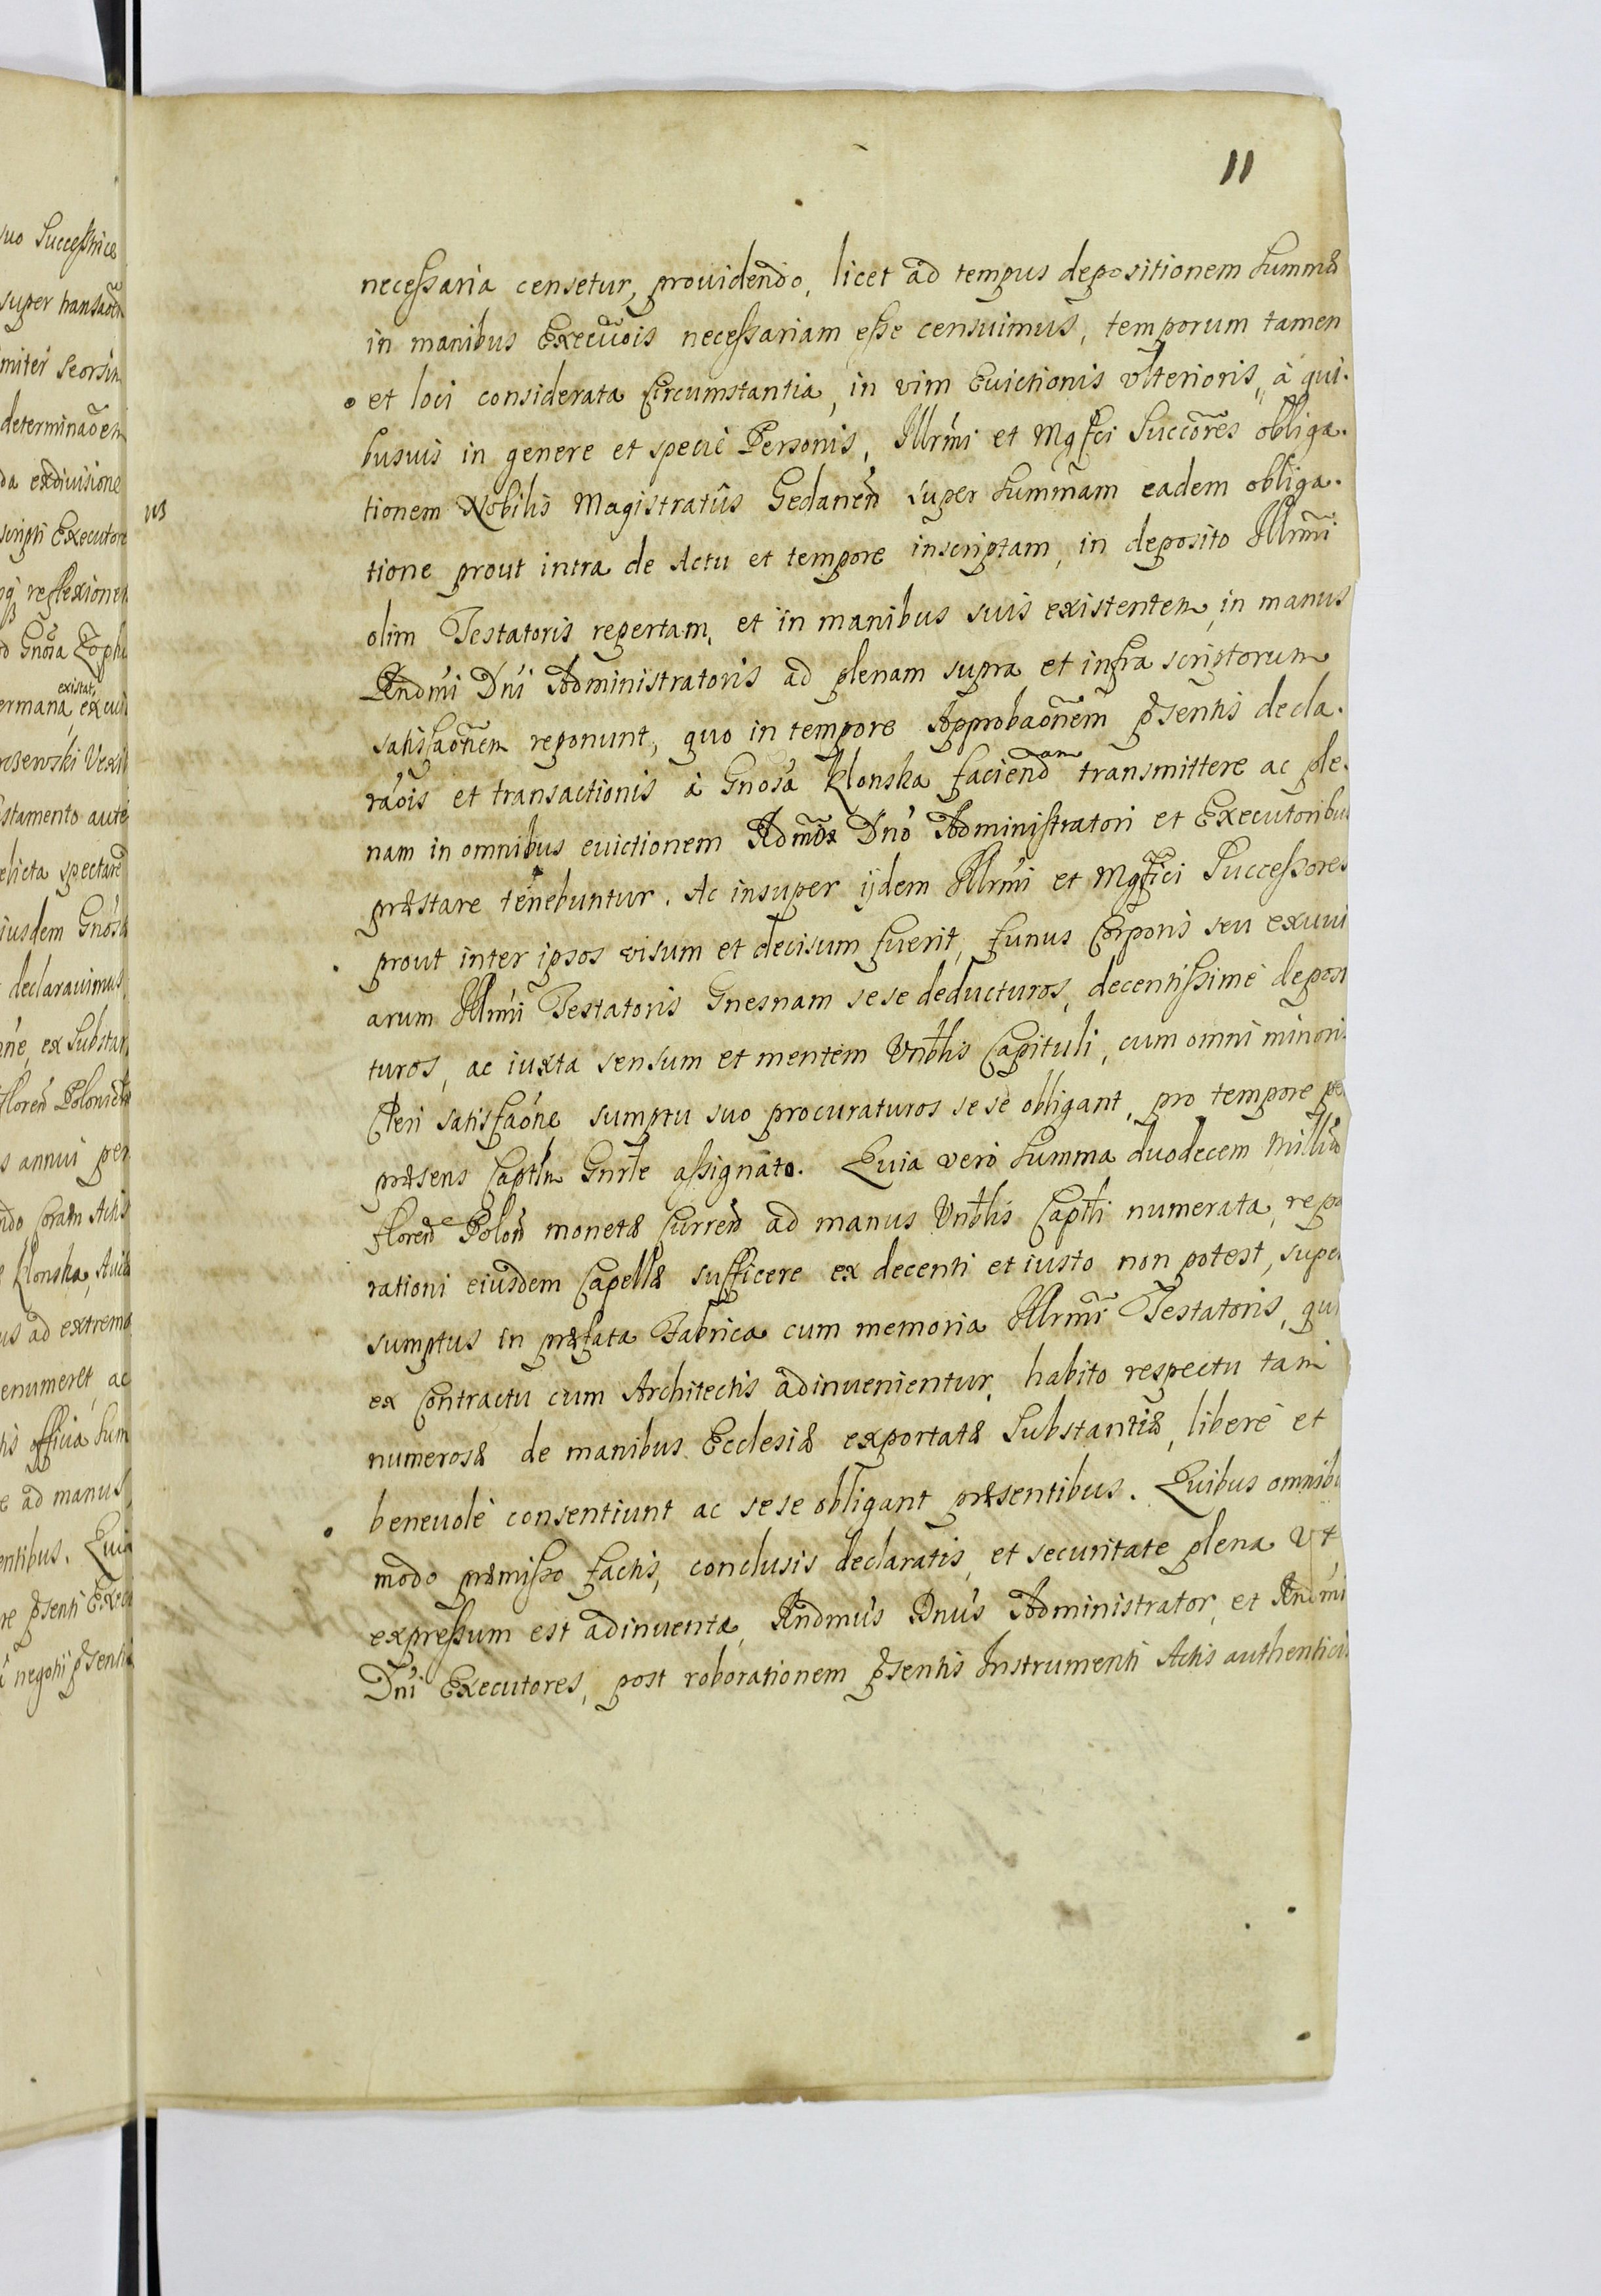 11
necessaria censetur, prouidendo, licet ad tempus depositionem summæ
in manibus Execuõis necessariam esse censuimus, temporum tamen
et loci considerata Circumstantia, in vim Euictionis vlterioris, à qui-
busuis in genere et specie Personis, Illrmi et Mgfci Succores obliga-
tionem Nobilis Magistratûs Gedanen super summam eadem obliga-
tione prout intra de Actu et tempore inscriptam, in deposito Illrmi
olim Testatoris repertam, et in manibus suis existentem, in manus
Rndmi Dni Administratoris ad plenam supra et infra scriptorum
satisfaõnem reponunt, quo in tempore Approbaõnem pñsentis decla-
raõis et transactionis à Gnosa Klonska faciendam transmittere ac ple-
nam in omnibus euictionem Rdmo Dno Administratori et Executoribus
præstare tenebuntur. Ac insuper ijdem Illrmi et Mgfici Successores
prout inter ipsos visum et decisum fuerit, funus Corporis seu exuui
arum Illmi Testatoris Gnesnam sese deducturos, decentissimè deposi
turos, ac iuxta sensum et mentem Vnblis Capituli, cum omni minoris
Cleri satisfaõne sumptu suo procuraturos sese obligant, pro tempore per
præsens Captlm Gnrle assignato. Quia verò summa duodecem Milliũ
floren Polon monetæ Curren ad manus Vnblis Captli numerata, repa
rationi eiusdem Capellæ sufficere ex decenti et iusto non potest, super
sumptus in præfata Fabrica cum memoria Illrmi Testatoris, qui
ex Contractu cum Architectis adinuenientur, habito respectu tam
numerosæ de manibus Ecclesiæ exportatæ Substantiæ, liberè et
beneuolè consentiunt ac sese obligant præsentibus. Quibus omnibu
modo præmisso factis, conclusis declaratis, et securitate plena vt
expressum est adinuenta, Rndmus Dnus Administrator, et Rndmi
Dni Executores, post roborationem pñsentis Instrumenti Actis authenticis